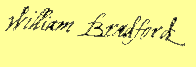 William Bradford